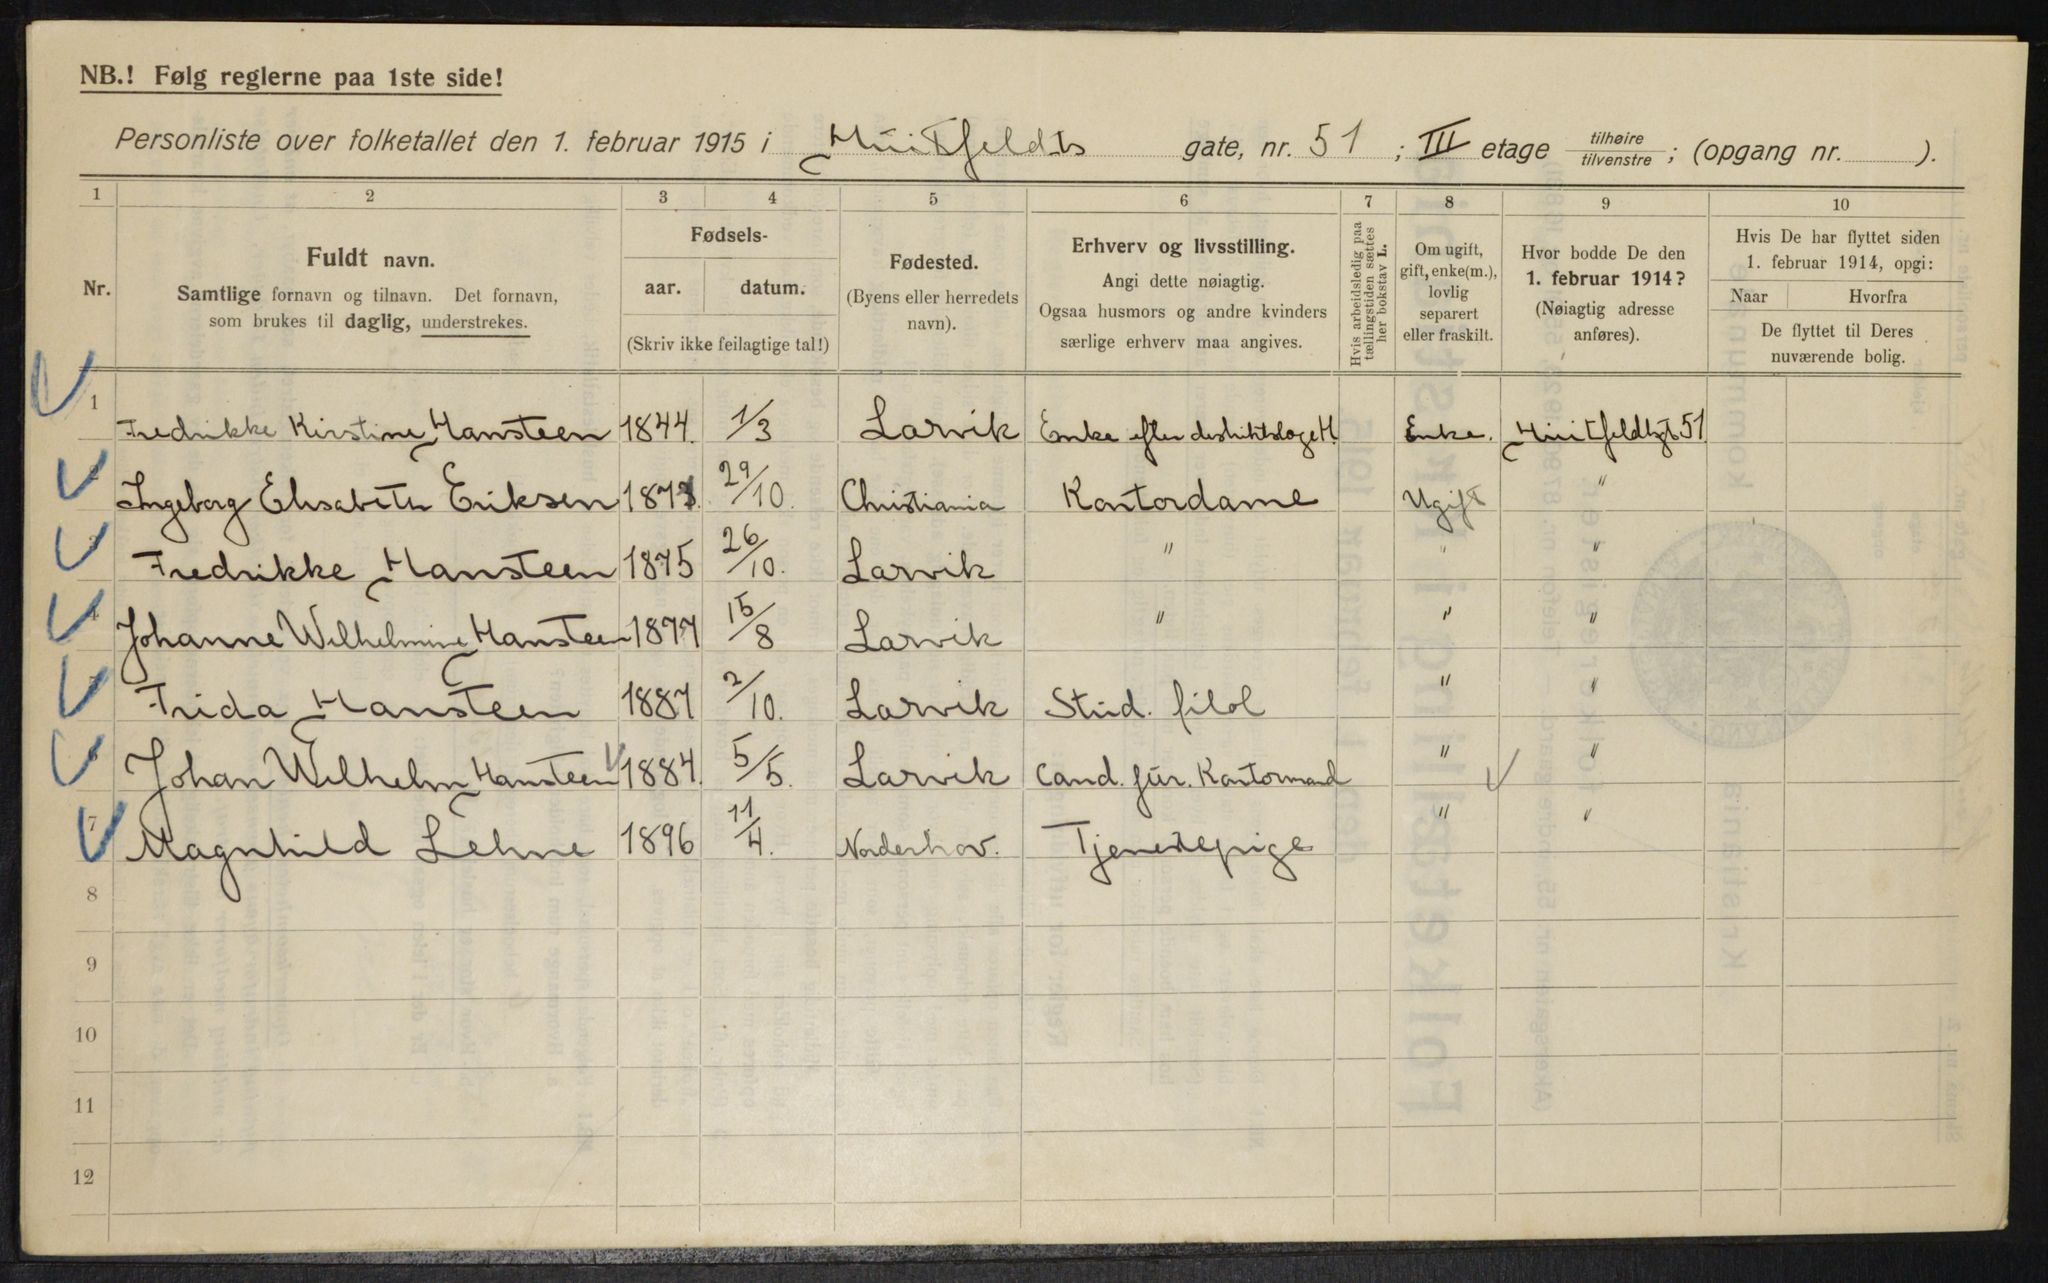 NB.! Følg reglerne paa 1ste side!
Personliste over folketallet den 1. februar 1915 i Huitfeldts gate, nr. 51 ; III etage tilhøire tilvenstre ; (opgang nr. ).
1 2 3 4 5 6 7 8 9 10
Nr.
Fuldt navn.
Samtlige fornavn og tilnavn. Det fornavn,
som brukes til daglig, understrekes.
Fødsels-
aar. datum.
(Skriv ikke feilagtige tal!)
Fødested.
(Byens eller herredets
navn).
Erhverv og livsstilling.
Angi dette nøiagtig.
Ogsaa husmors og andre kvinders
særlige erhverv maa angives.
Hvis arbeidsledig paa
tællingstiden sættes
her bokstav L.
Om ugift,
gift, enke(m.),
lovlig
separert
eller fraskilt.
Hvor bodde De den
1. februar 1914?
(Nøiagtig adresse
anføres).
Hvis De har flyttet siden
1. februar 1914, opgi:
Naar Hvorfra
De flyttet til Deres
nuværende bolig.
1 Fredrikke Kirstine Hansteen 1844. 1/3 Larvik Enke efter Enke. Huitfeldtgt 51
Ingeborg Elisabeth Eriksen 29/10. Christiania Kontordame Ugift "
Fredrikke Hansteen 1875 26/10. Larvik " " "
Johanne Wilhelmine Hansteen 1877 15/8 Larvik " " "
Frida Hansteen 1887 2/10. Larvik Stud. filol " "
Johan Wilhelm Hansteen 1884. 5/5. Larvik Cand. jur. Kontormand " "
7 Magnhild Lehne 1896 11/4. Norderhov. Tjenestepige " "
8
9
10
11
12